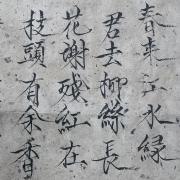 春来江水緑
君去柳絲長
花謝殘紅在
枝頭有余香